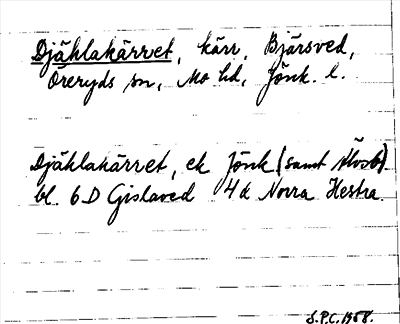 Djäklakärret, kärr, Bjärsved,
Öreryds sn, Mo hd, Jönk. l.
Djäklakärret, ek Jönk (samt Älvsb).
bl. 6D Gislaved 4d Norra Hestra.
S.P.C. 1968.